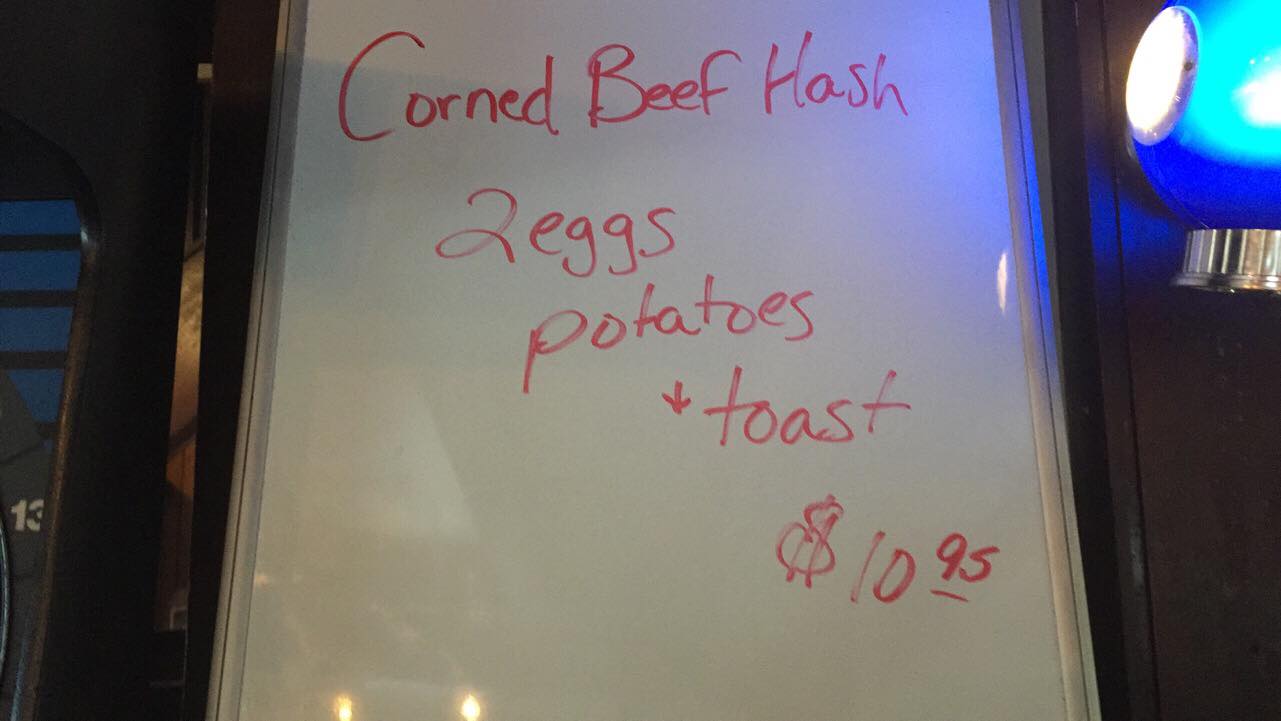 Corned Beef Hash
2 eggs
potatoes
+ toast
$10.95
13